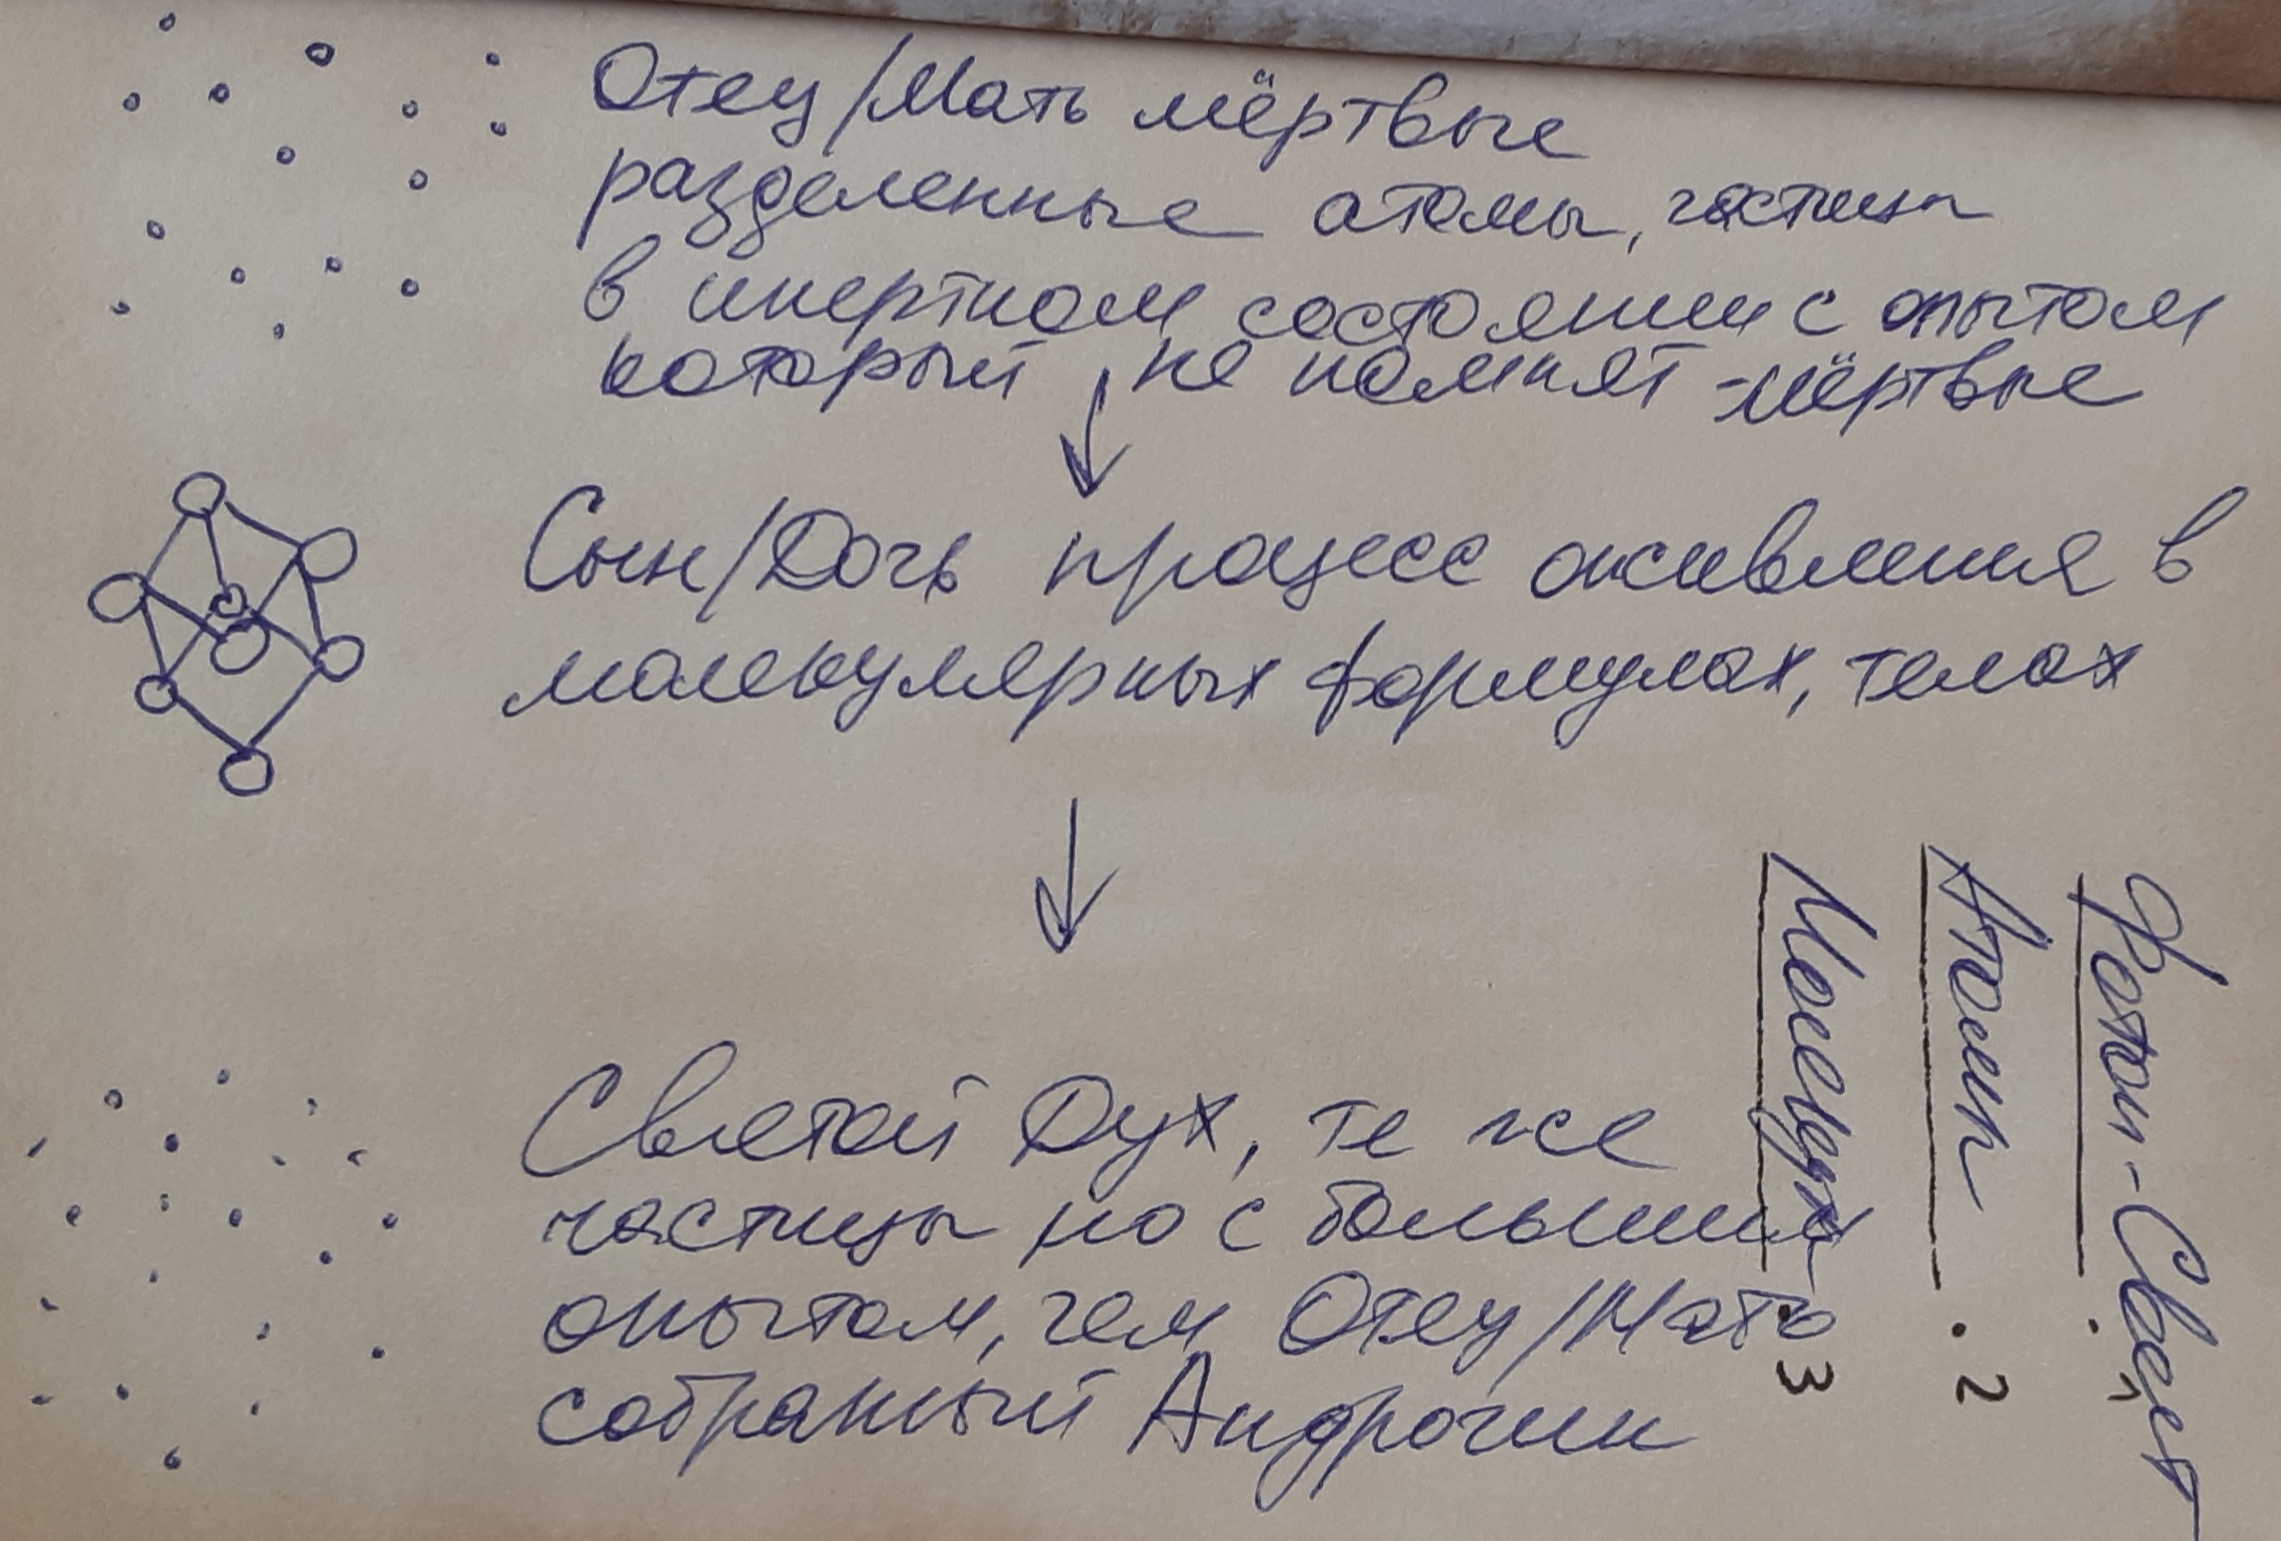 Отец/Мать мёртвые
разделенные атомы, частицы
в инертном состоянии с опытом
который не помнят - мёртвые
Сын/Дочь процесс оживления в
молекулярных формулах, телах
Святой Дух, те же
частицы но с большим
опытом, чем Отец/Мать
собранный Андрогин
Фотон - Свет
Атом . 2
. 3